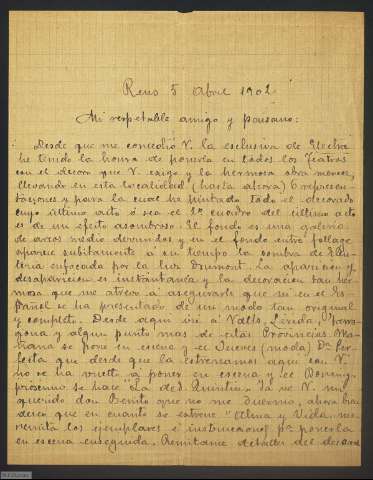 Reus 5 Abril 1902
Mi respetable amigo y paisano:
Desde que me concedió V. la esclusiva de Electra
he tenido la honra de ponerla en todos los Teatros
con el decoro que V. exige y la hermosa obra merece,
llevando en esta localidad (hasta ahora) 6 represen-
taciones y para la cual he pintado todo el decorado
cuyo último exito ó sea el 2º cuadro del último acto
es de un efecto asombroso. El fondo es una galeria
de arcos medio derruidos y en el fondo entre follage
aparece subitamente á su tiempo la sombra de Eleu-
teria enfocada por la luz Drumont. La aparición y
desaparición es instantánea y la decoración tan her-
mosa que me atrevo á asegurarle que ni en el Es-
pañol se ha presentado de un modo tan original
y completo. Desde aqui voy á Valls, Lérida, Tarra-
gona y algun punto mas de estas Provincias. Ma-
ñana se pone en escena y el Jueves (moda) Dª Per-
fecta que desde que la estrenamos aqui con V.
no se ha vuelto á poner en escena y el Doming.
próximo se hace "La de S. Quintin". Ya ve V. mi
querido don Benito que no me duermo, ahora bien
deseo que en cuanto se estrene "Alma y Vida" me
remita los ejemplares é instrucciones pª ponerla
en escena enseguida. Remitame detalles del decorado